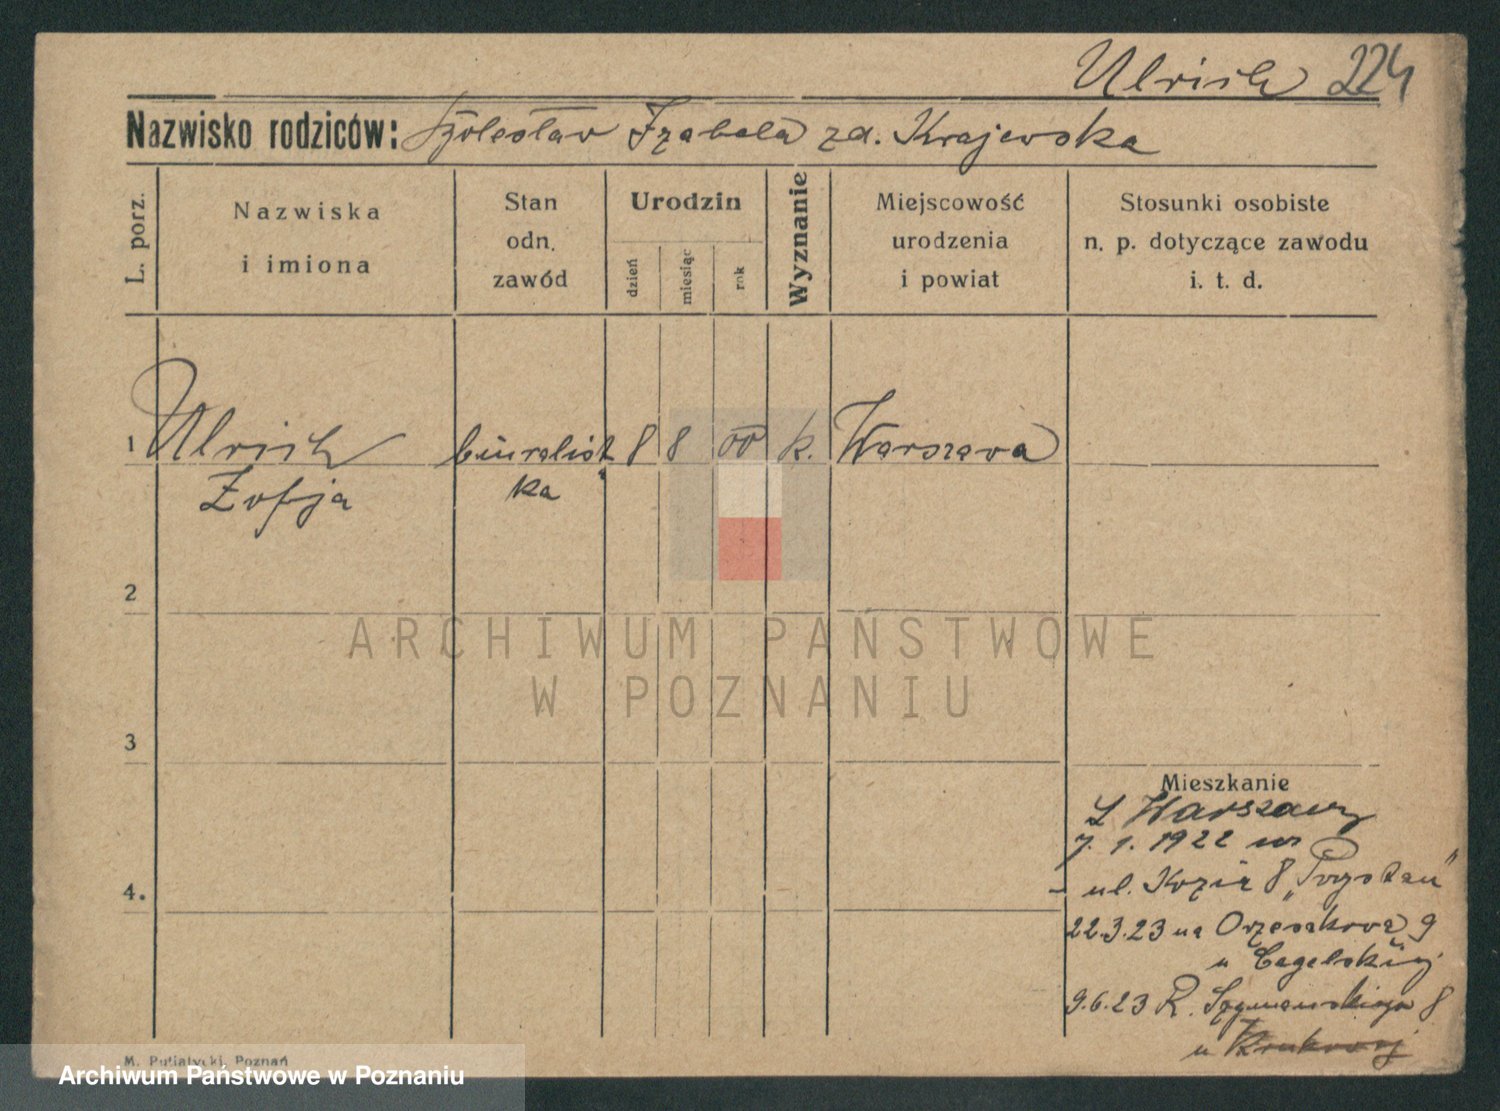 Ulrich 224
Nazwisko rodziców: Izabela zd. Krajewska
L. porz.
Nazwiska
i imiona
Stan
odn.
zawód
Urodzin
dzień
miesiąc
rok
Wyznanie
Miejscowość
urodzenia
i powiat
Stosunki osobiste
n. p. dotyczące zawodu
i. t. d.
1 Ulrich biuralist 8 8 00 k. Warszawa
Zofja ka
2
ARCHIWUM PAŃSTWOWE
W POZNANIU
3
Mieszkanie
z Warszawy
7. 1. 1922
4.
ul. Kozia 8 "Przystań"
22.3.23 na Orzeszkowa 9
u Cegelskiej
9.6.23 R. Szymańskiego 8
u
M. Putiatycki, Poznań
Archiwum Państwowe w Poznaniu